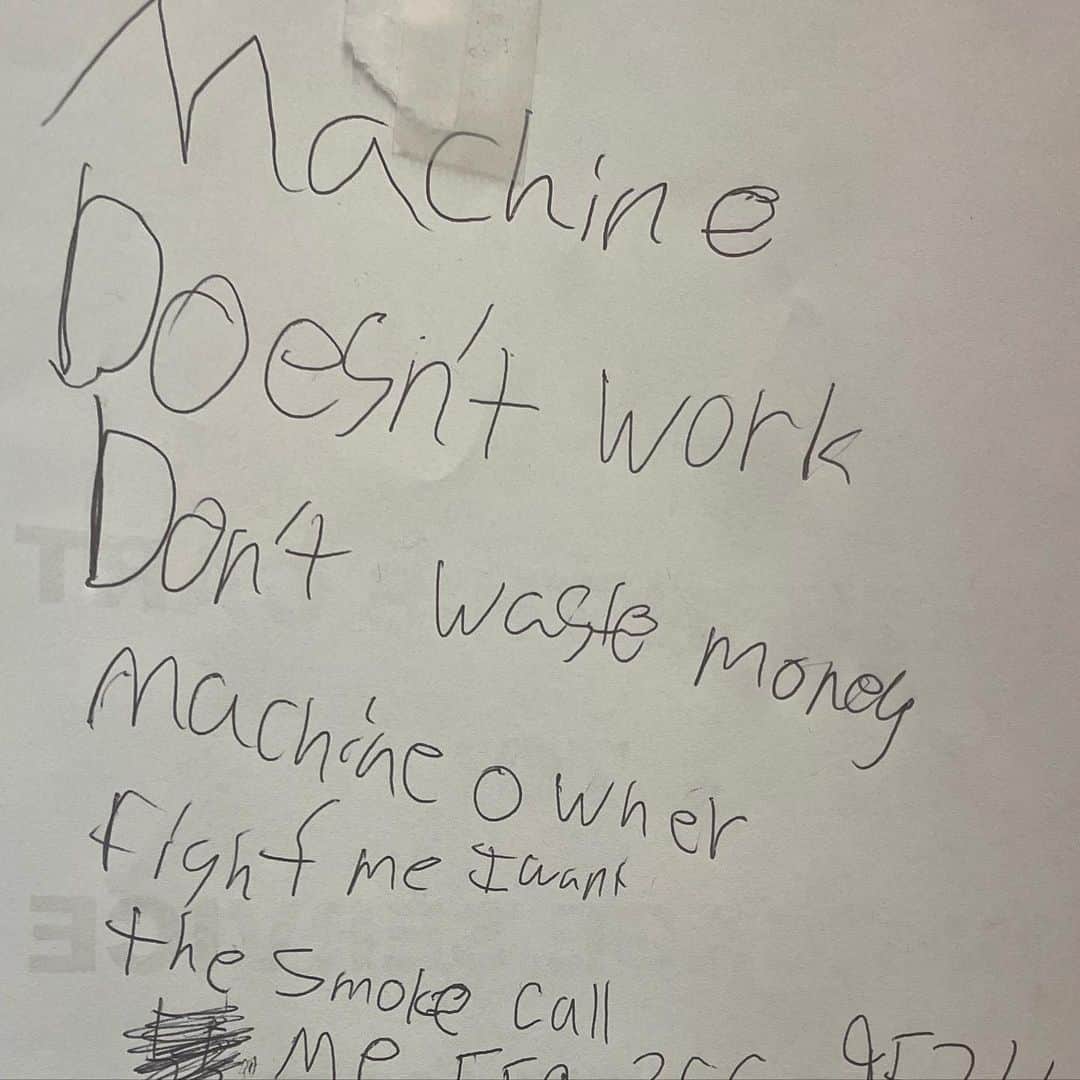 Machine
Doesn't work
Don't waste money
Machine owner
Fight me I want
the smoke call
Me